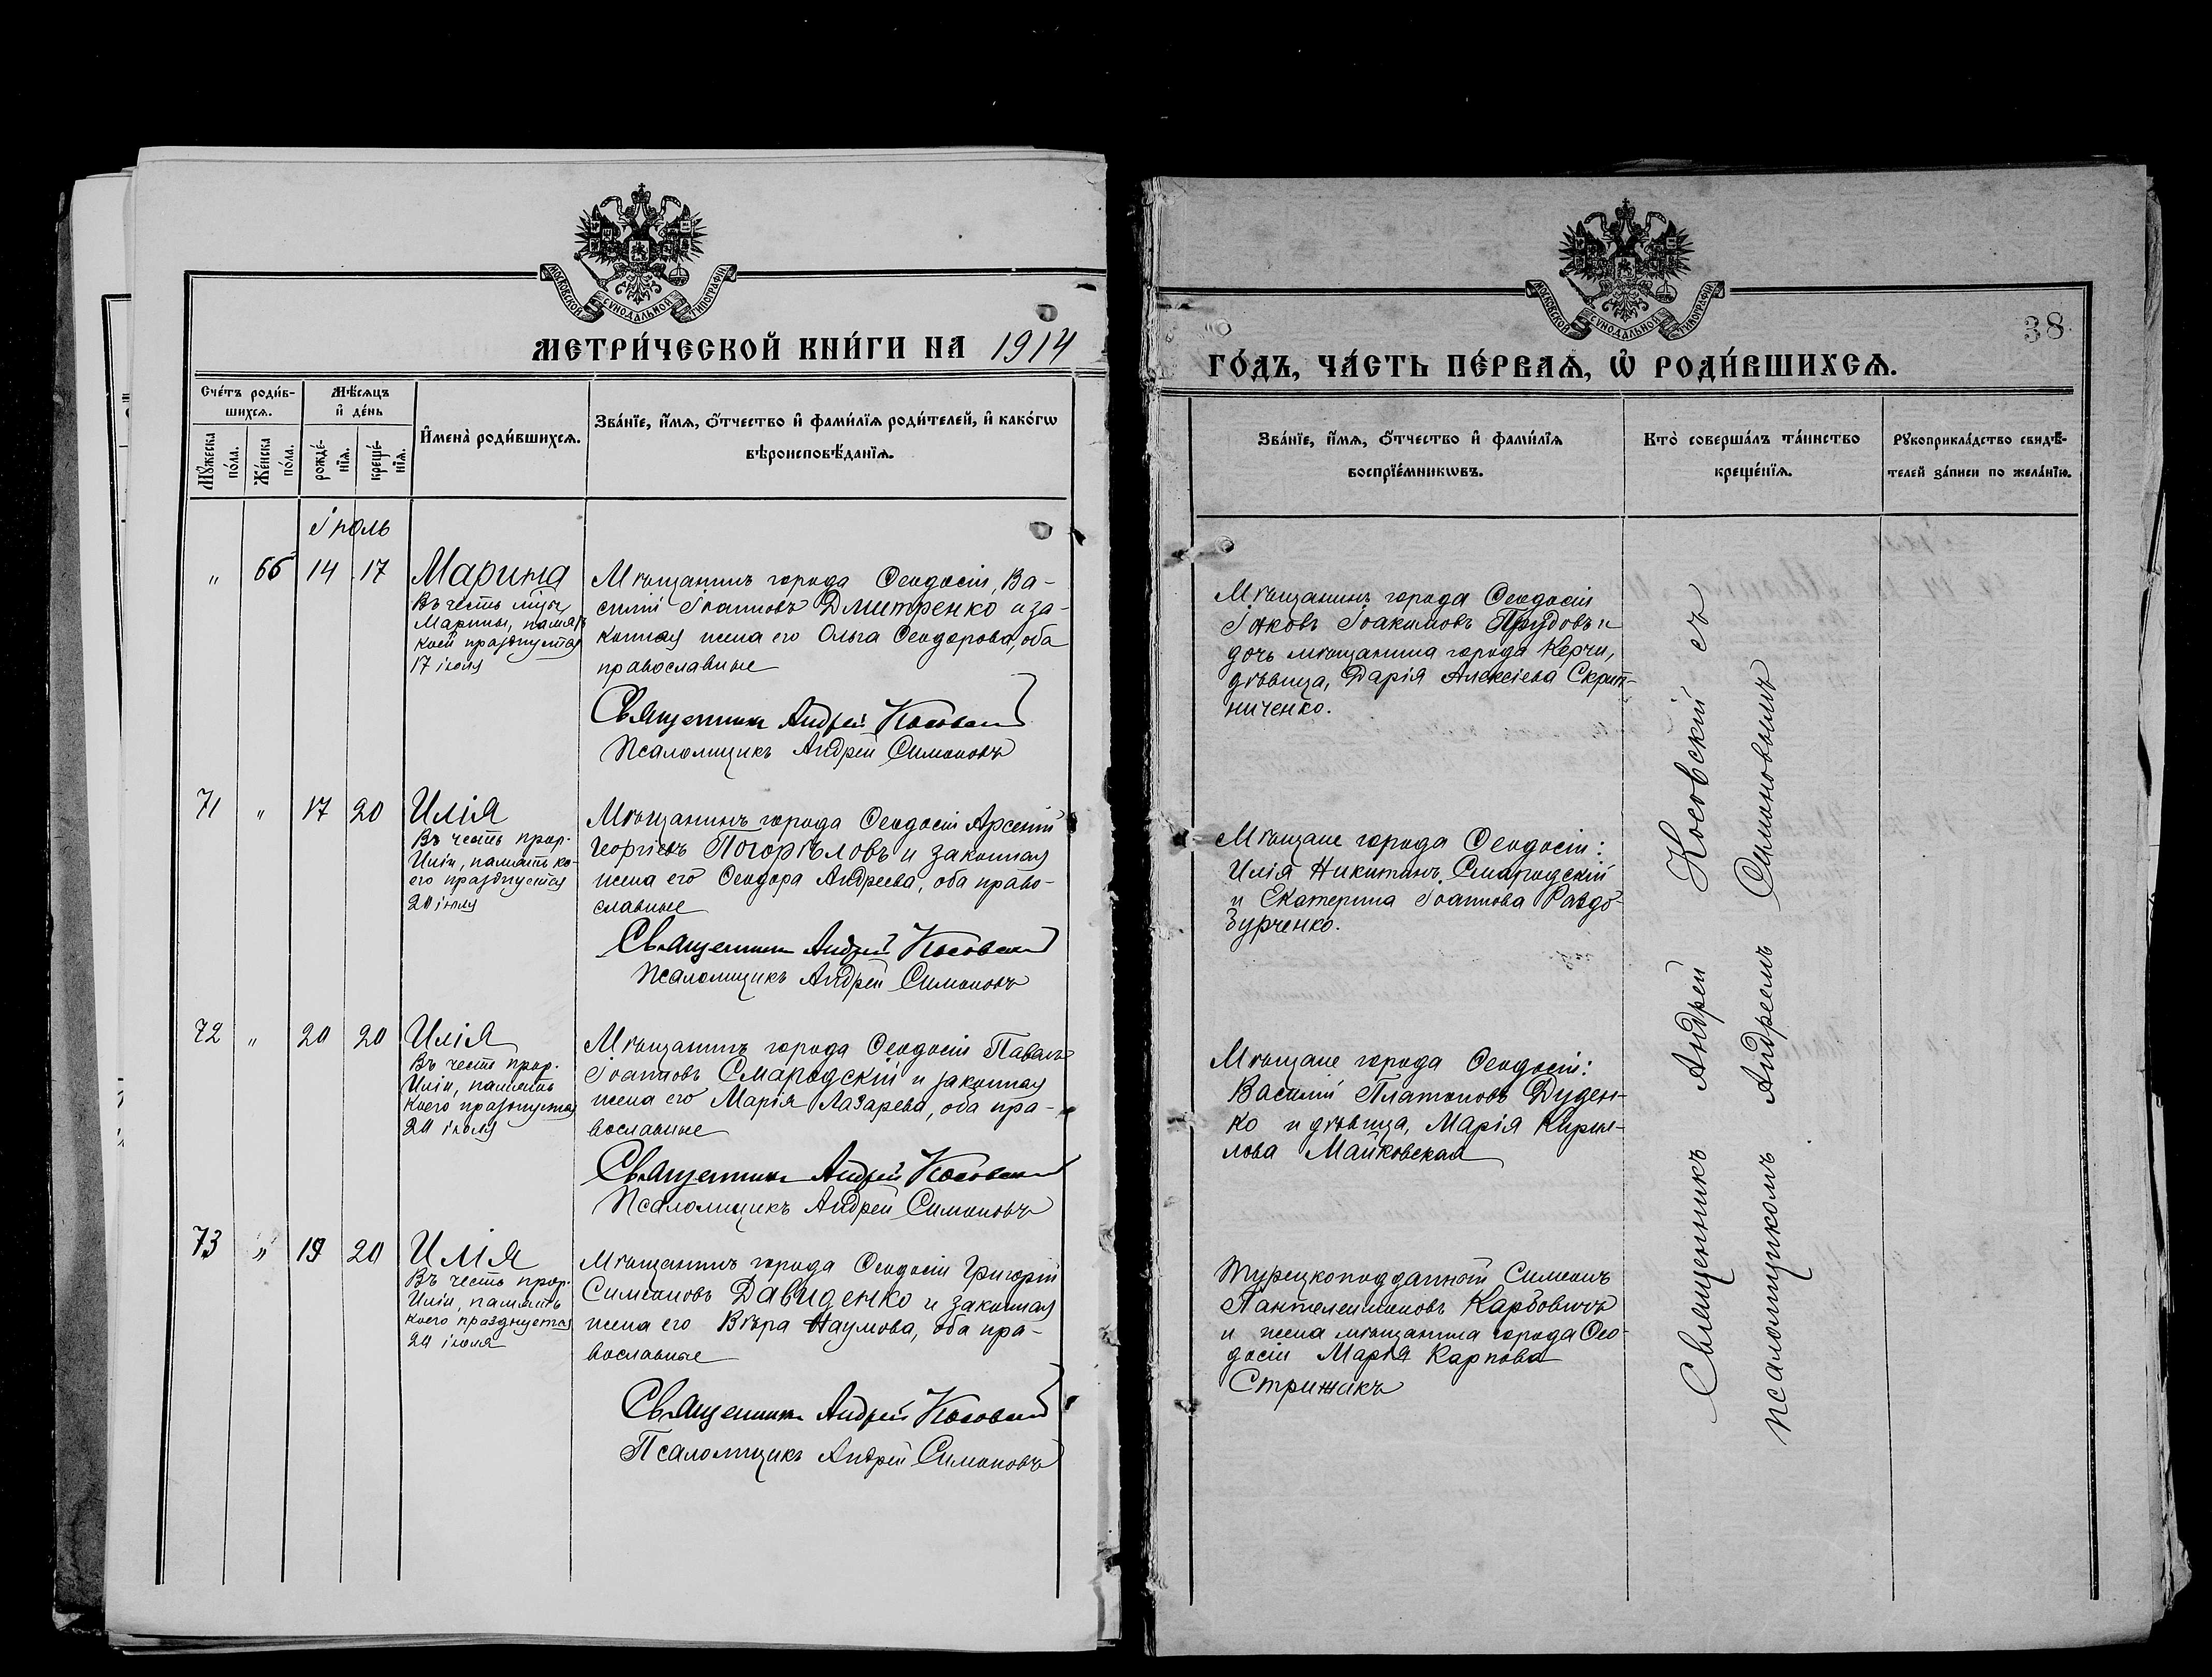 МОСКОВСКОЙ СѴНОДАЛЬНОЙ ТИПОГРАФІИ
МЕТРИ́ЧЕСКОЙ КНИ́ГИ НА 1914
Сче́тъ роди́в-
шихсѧ.
Мѣ́сѧцъ
и҆ де́нь
И҆мена̀ роди́вшихсѧ.
Зва́нїе, и҆́мѧ, ѻ҆́тчество и҆ фами́лїѧ роди́телей, и҆ како́гѡ
вѣроисповѣ́данїѧ.
Мꙋ́жеска
по́ла.
Же́нска
по́ла.
рожде́-
нїѧ.
креще́-
нїѧ.
Іюль
" 66 14 17 Марина
Въ честь мцы
Марины, память
коей празднуется
17 іюля
Мѣщанинъ города Ѳеодосіи, Ва-
силій Іоанновъ Дмитренко и за-
конная жена его Ольга Ѳеодорова, оба
православные
Священникъ Андрей Косовскій
Псаломщикъ Андрей Симоновъ
71 " 17 20 Илія
Въ честь прор.
Иліи, память ко-
его празднуется
20 іюля
Мѣщанинъ города Ѳеодосіи Арсеній
Георгіевъ Погорѣловъ и законная
жена его Ѳеодора Андреева, оба право-
славные
Священникъ Андрей Косовскій
Псаломщикъ Андрей Симоновъ
72 " 20 20 Илія
Въ честь прор.
Иліи, память
коего празднуется
20 іюля
Мѣщанинъ города Ѳеодосіи Павелъ
Іоанновъ Смародскій и законная
жена его Марія Лазарева, оба пра-
вославные
Священникъ Андрей Косовскій
Псаломщикъ Андрей Симоновъ
73 " 19 20 Илія
Въ честь прор.
Иліи, память
коего празднуется
20 іюля
Мѣщанинъ города Ѳеодосіи Григорій
Симеоновъ Давиденко и законная
жена его Вѣра Наумова, оба пра-
вославные
Священникъ Андрей Косовскій
Псаломщикъ Андрей Симоновъ
МОСКОВСКОЙ СѴНОДАЛЬНОЙ ТИПОГРАФІИ
38
ГО́ДЪ, ЧА́СТЬ ПЕ́РВАѦ, Ѡ҆ РОДИ́ВШИХСѦ.
Зва́нїе, и҆́мѧ, ѻ҆́тчество и҆ фами́лїѧ
воспрїе́мникѡвъ.
Кто̀ соверша́лъ та́инство
креще́нїѧ.
Рꙋкоприкла́дство свидѣ́-
телей за́писи по жела́нїю.
Мѣщанинъ города Ѳеодосіи
Іаковъ Іоакимовъ Прудовъ и
дочь мѣщанина города Керчи,
дѣвица, Дарія Алексіева Скрип-
ниченко.
Мѣщане города Ѳеодосіи:
Илія Никитинъ Смародскій
и Екатерина Іоаннова Раздо-
бурченко.
Мѣщане города Ѳеодосіи:
Василій Платоновъ Дуден-
ко и дѣвица, Марія Кирил-
лова Майковская
Турецкоподданный Симеонъ
Пантелеимоновъ Карбовъ
и жена мѣщанина города Ѳео-
досіи Марія Карпова
Стрижакъ
Священникъ Андрей Косовскій съ
псаломщикомъ Андреемъ Симоновымъ